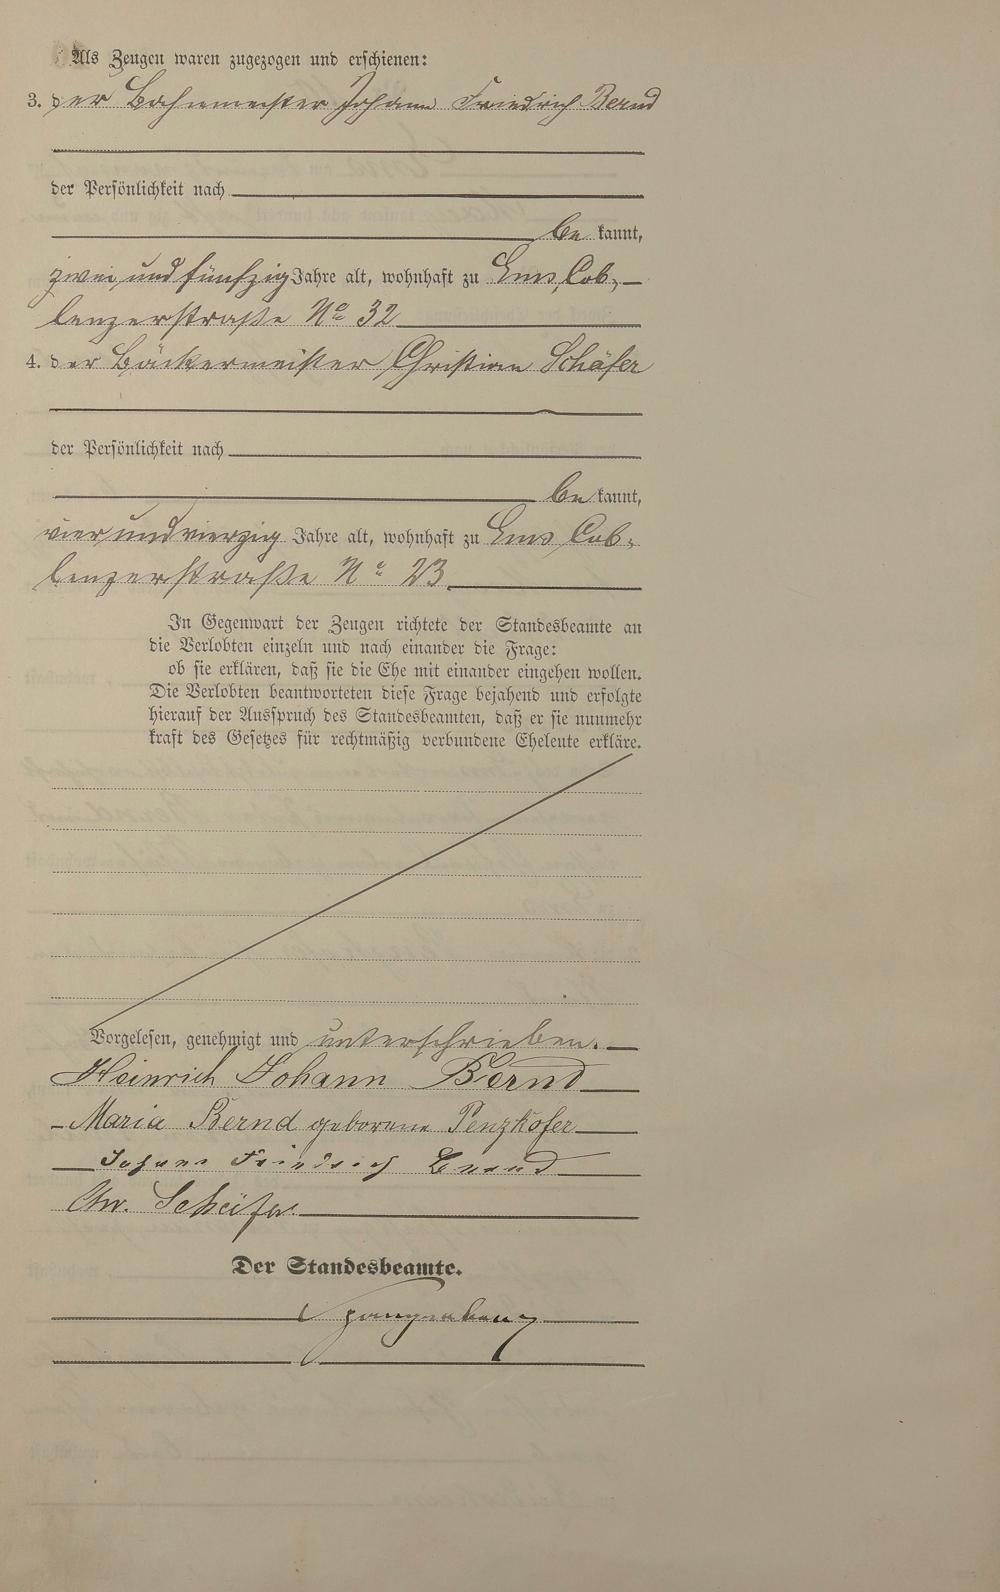 Als Zeugen waren zugezogen und erschienen:
3. der Bahnmeister Johann Friedrich Bernd
der Persönlichkeit nach
be kannt,
zwei und fünfzig Jahre alt, wohnhaft zu Ems, Cob-
lenzerstraße No 32
4. der Bäckermeister Christian Schäfer
der Persönlichkeit nach
be kannt,
vier und vierzig Jahre alt, wohnhaft zu Ems, Cob-
lenzerstraße No 23
In Gegenwart der Zeugen richtete der Standesbeamte an
die Verlobten einzeln und nach einander die Frage:
ob sie erklären, daß sie die Ehe mit einander eingehen wollen.
Die Verlobten beantworteten diese Frage bejahend und erfolgte
hierauf der Ausspruch des Standesbeamten, daß er sie nunmehr
kraft des Gesetzes für rechtmäßig verbundene Eheleute erkläre.
Vorgelesen, genehmigt und unterschrieben.
Heinrich Johann Bernd
Maria Bernd geborene Penzkofer
Johann Friedrich Bernd
Chr. Schäfer
Der Standesbeamte.
Spangenberg